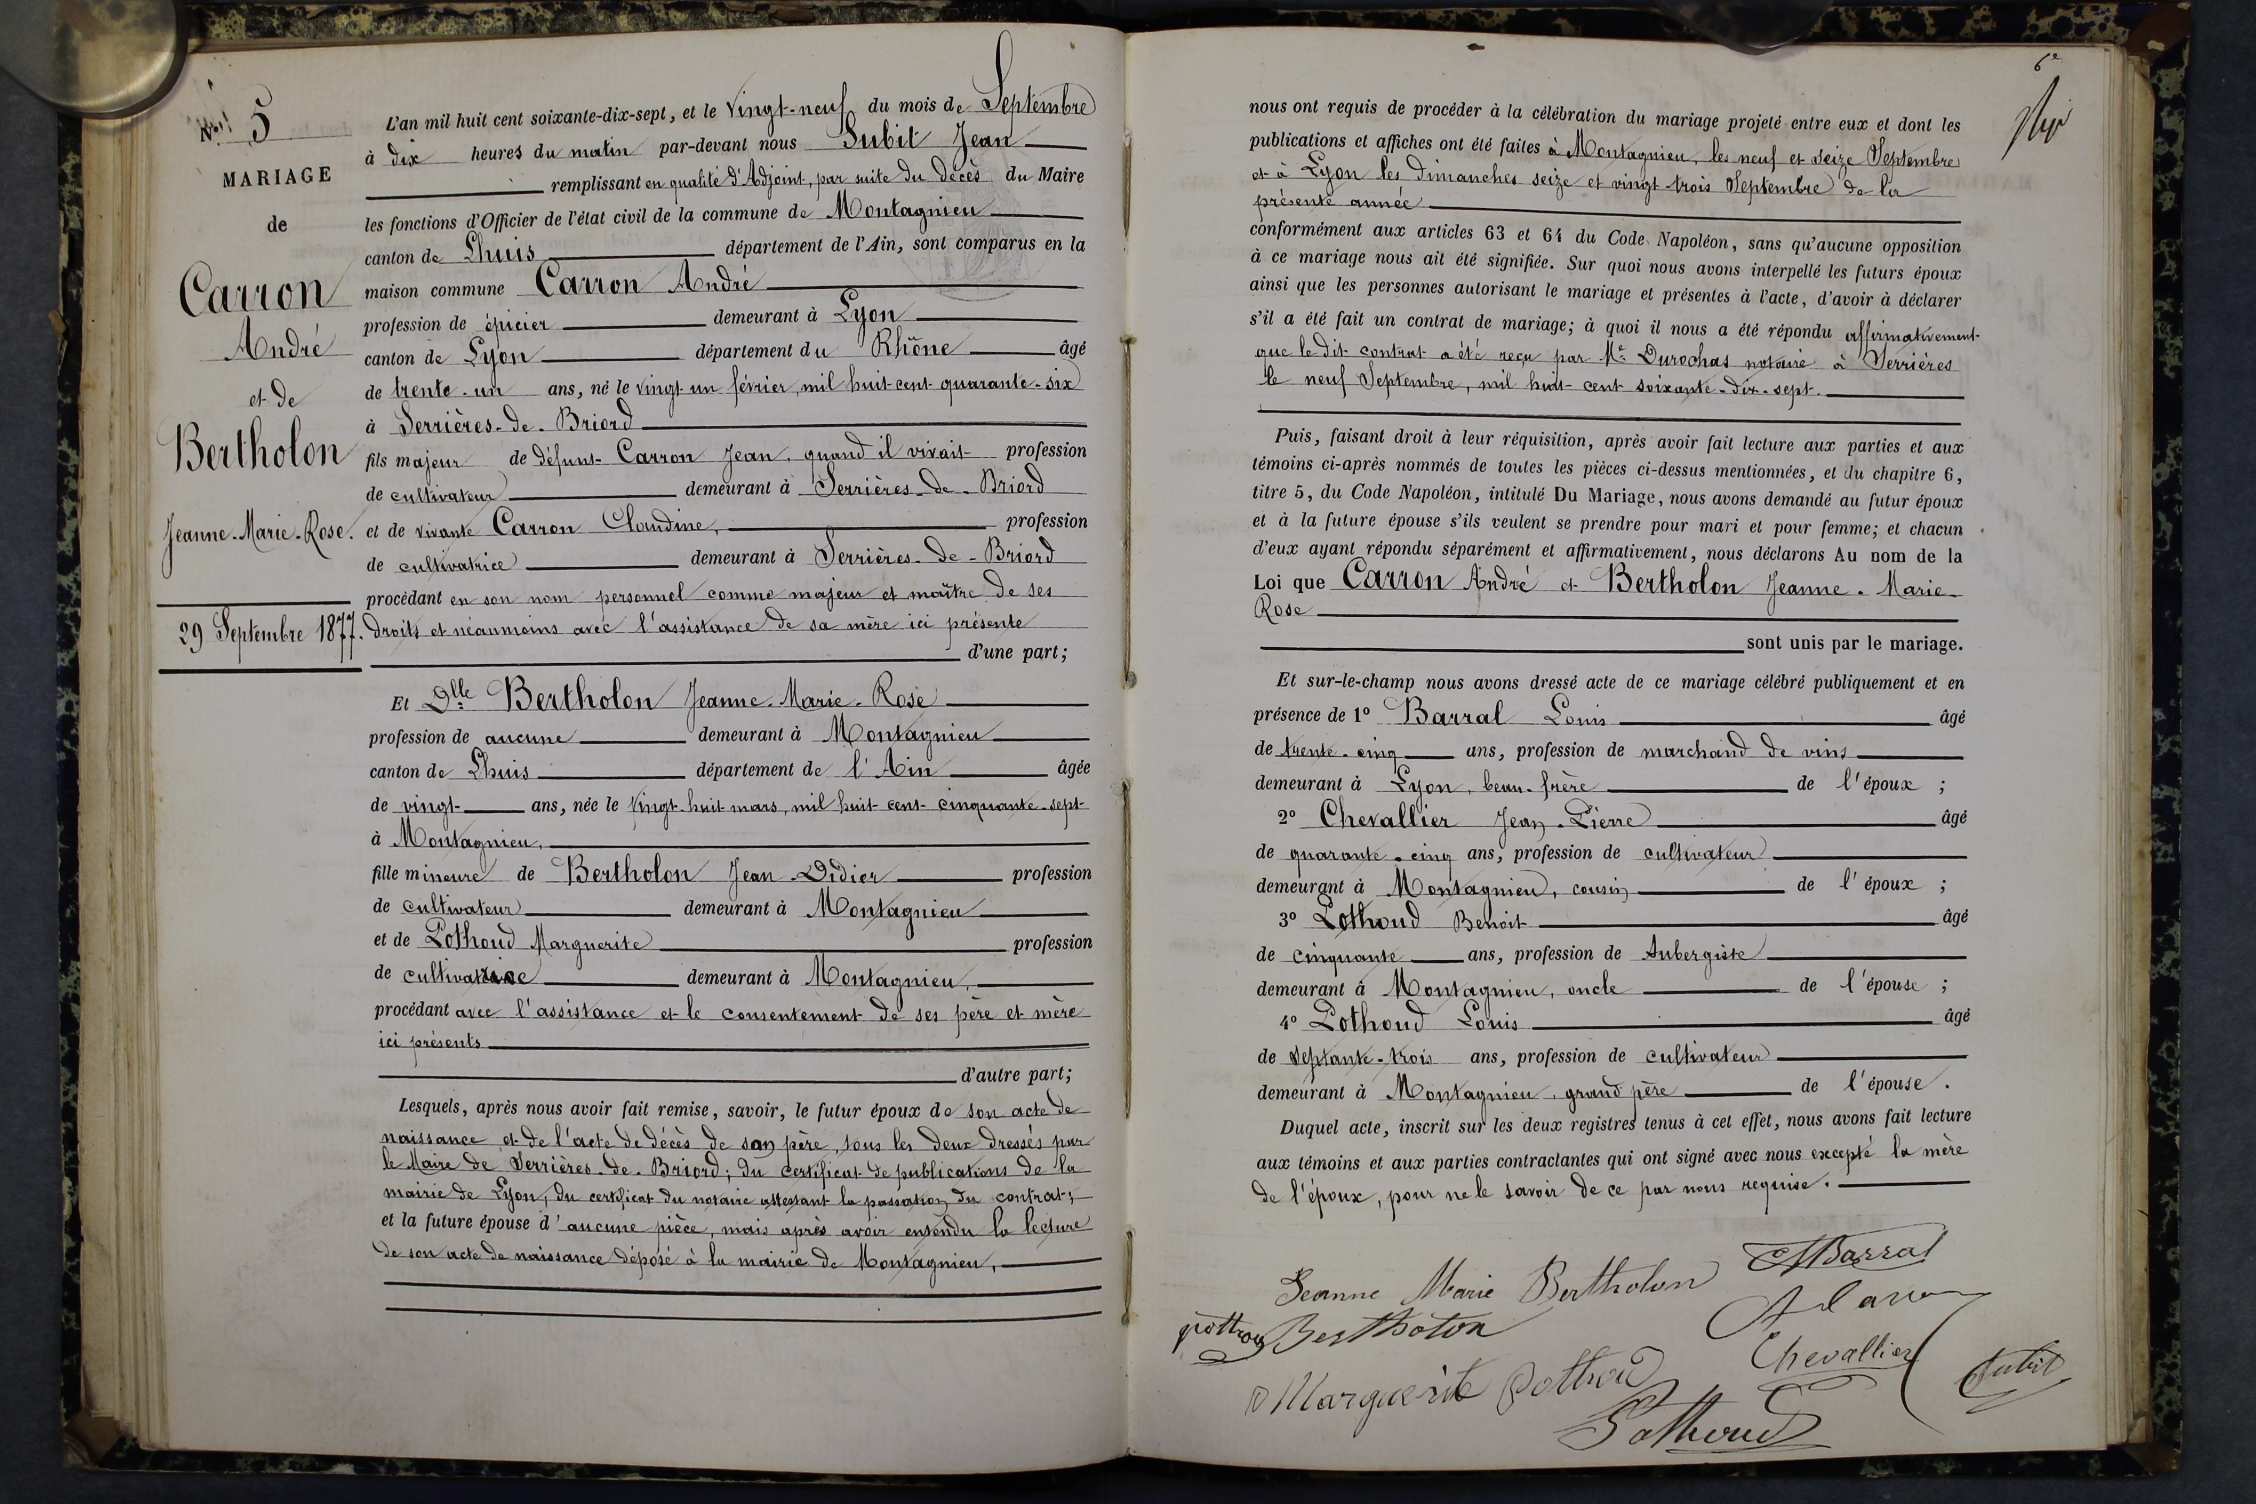 N° 5
MARIAGE
de
Carron
André
et de
Bertholon
Jeanne-Marie-Rose.
29 Septembre 1877.
L'an mil huit cent soixante-dix-sept, et le Vingt-neuf du mois de Septembre
à dix heures du matin par-devant nous Subit Jean
remplissant en qualité d'Adjoint, par suite du décès du Maire
les fonctions d'Officier de l'état civil de la commune de Montagnieu
canton de Lhuis département de l'Ain, sont comparus en la
maison commune Carron André
profession de épicier demeurant à Lyon
canton de Lyon département du Rhône âgé
de trente-un ans, né le vingt-un février, mil huit-cent-quarante-six
à Serrières-de-Briord
fils majeur de défunt Carron Jean, quand il vivait profession
de cultivateur demeurant à Serrières-de-Briord
et de vivante Carron Claudine, profession
de cultivatrice demeurant à Serrières-de-Briord
procédant en son nom personnel comme majeur et maître de ses
droits et néaumoins avec l'assistance de sa mère ici présente
d'une part;
Et Dlle Bertholon Jeanne-Marie-Rose
profession de aucune demeurant à Montagnieu
canton de Lhuis département de l'Ain âgée
de vingt ans, née le Vingt-huit mars, mil huit-cent-cinquante-sept
à Montagnieu,
fille mineure de Bertholon Jean-Didier profession
de cultivateur demeurant à Montagnieu
et de Pothoud Marguerite profession
de cultivatrice demeurant à Montagnieu,
procédant avec l'assistance et le consentement de ses père et mère
ici présents
d'autre part;
Lesquels, après nous avoir fait remise, savoir, le futur époux de son acte de
naissance et de l'acte de décès de son père, tous les deux dressés par
le Maire de Serrières-de-Briord; du certificat de publications de la
mairie de Lyon, du certificat du notaire attestant la passation du contrat;
et la future épouse d'aucune pièce, mais après avoir entendu la lecture
de son acte de naissance déposé à la mairie de Montagnieu,
6e
nous ont requis de procéder à la célébration du mariage projeté entre eux et dont les
publications et affiches ont été faites à Montagnieu, les neuf et seize Septembre
et à Lyon les dimanches seize et vingt-trois Septembre de la
présente année
conformément aux articles 63 et 64 du Code Napoléon, sans qu'aucune opposition
à ce mariage nous ait été signifiée. Sur quoi nous avons interpellé les futurs époux
ainsi que les personnes autorisant le mariage et présentes à l'acte, d'avoir à déclarer
s'il a été fait un contrat de mariage; à quoi il nous a été répondu affirmativement
que le dit contrat a été reçu par Me Durochas notaire à Serrières
le neuf Septembre, mil huit-cent soixante-dix-sept.
Puis, faisant droit à leur réquisition, après avoir fait lecture aux parties et aux
témoins ci-après nommés de toutes les pièces ci-dessus mentionnées, et du chapitre 6,
titre 5, du Code Napoléon, intitulé Du Mariage, nous avons demandé au futur époux
et à la future épouse s'ils veulent se prendre pour mari et pour femme; et chacun
d'eux ayant répondu séparément et affirmativement, nous déclarons Au nom de la
Loi que Carron André et Bertholon Jeanne-Marie-
Rose
sont unis par le mariage.
Et sur-le-champ nous avons dressé acte de ce mariage célébré publiquement et en
présence de 1° Barral Louis âgé
de trente-cinq ans, profession de marchand de vins
demeurant à Lyon, beau-frère de l'époux ;
2° Chevallier Jean-Pierre âgé
de quarante-cinq ans, profession de cultivateur
demeurant à Montagnieu, cousin de l'époux ;
3° Pothoud Benoit âgé
de cinquante ans, profession de Aubergiste
demeurant à Montagnieu, oncle de l'épouse ;
4° Pothoud Louis âgé
de septante-trois ans, profession de cultivateur
demeurant à Montagnieu, grand père de l'épouse.
Duquel acte, inscrit sur les deux registres tenus à cet effet, nous avons fait lecture
aux témoins et aux parties contractantes qui ont signé avec nous excepté la mère
de l'époux, pour ne le savoir de ce par nous requise.
Jeanne Marie Bertholon Barral
Bertholon
Chevallier Subit
Marguerite Pothoud
Pothoud